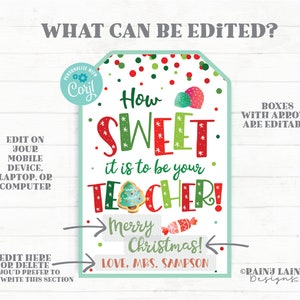 WHAT CAN BE EDITED?
PERSONALIZE WITH
Corjl
How
SWEET
it is to be your
TEACHER!
Merry
Christmas!
LOVE, MRS. SAMPSON
EDIT ON
YOUR
MOBILE
DEVICE,
LAPTOP, OR
COMPUTER
BOXES
WITH ARROW
ARE EDITABL
EDIT HERE
OR DELETE
WOULD PREFER TO
WRITE THIS SECTION
©RAINJ LAINE
Designs